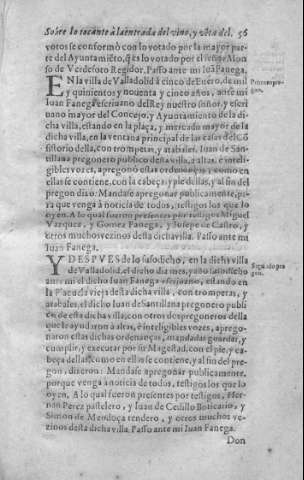 Sobre lo tocante à la entrada del vino, y vẽta del. 56
votos se conformò con lo votado por la mayor par-
te del Ayuntamiẽto, q̃ es lo votado por el señor Alon-
so de Verdesoto Regidor. Passo ante mi Iuã Fanega.
EN la villa de Valladolid à cinco de Enero, de mil
y quinientos y nouenta y cinco años, ante mi
Iuan Fanega escriuano del Rey nuestro señor, y escri
uano mayor del Concejo, y Ayuntamiento de la di-
cha villa, estando en la plaça, y mercado mayor de la
dicha villa, en la ventana principal de las casas del Cō
sistorio della, con trompetas, y atabales. Iuan de San-
tillana pregonero publico desta villa, a altas, e inteli-
gibles vozes, apregonò estas ordenanças, como en
ellas se contiene, con la cabeça, y pie dellas, y al fin del
pregon dixo: Mandase apregonar publicamente, por
que venga à noticia de todos, testigos los que lo
oyen. A lo qual fueron presentes por testigos Miguel
Vazquez, y Gomez Fanega, y Iusepe de Castro, y
otros muchos vezinos desta dicha villa. Passo ante mi
Iuan Fanega.
Y DESPVES de lo susodicho, en la dicha villa
de Valladolid, el dicho dia mes, y año susodicho
ante mi el dicho Iuan Fanega escriuano, estando en
la Placuela vieja desta dicha villa, con trompetas, y
atabales, el dicho Iuan de Santillana pregonero publi
co de esta dicha villa, con otros des pregoneros della
que le ayudaron à altas, è inteligibles vozes, aprego-
naron estas dichas ordenanças, mandadas guardar, y
cumplir, y executar por su Magestad, con el pie, y ca-
beça dellas, como en ellos se contiene, y al fin del pre-
gon, dixeron: Mandase apregonar publicamente,
porque venga à noticia de todos, testigos los que lo
oyen. A lo qual fueron presentes por testigos, Her-
nan Perez pastelero, y Iuan de Cedillo Boticario, y
Simon de Mendoça tendero, y otros muchos ve-
zinos desta dicha villa. Passo ante mi Iuan Fanega.
Don
Primero pre-
gon.
Segũdo pre
gon.